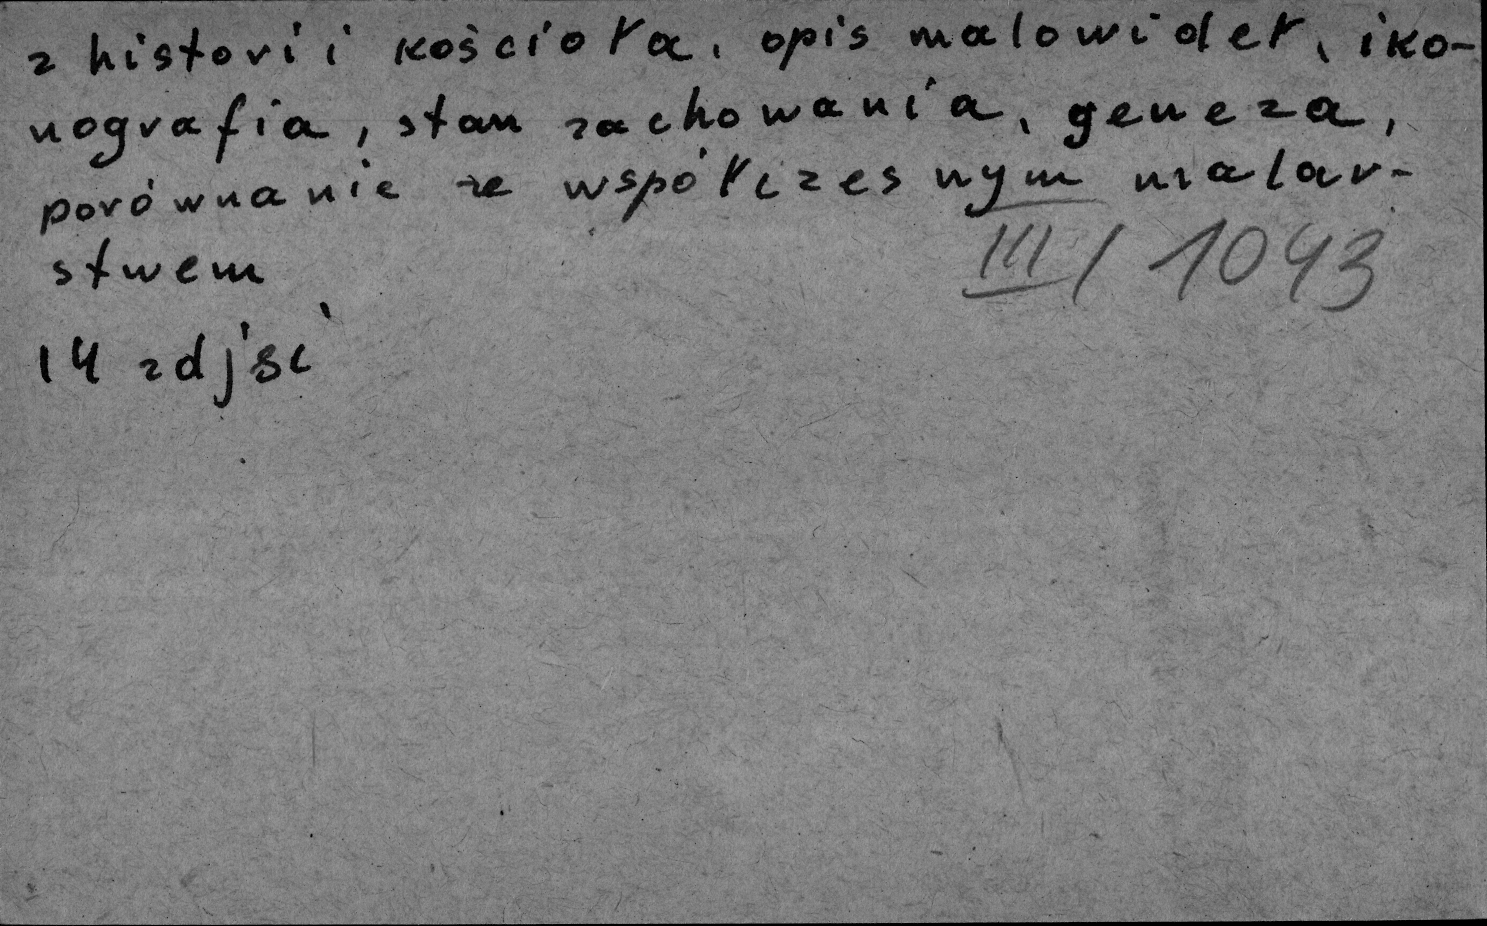 z historii kościoła, opis malowideł, iko-
nografia, stan zachowania, geneza,
porównanie ze współczesnym malar-
stwem
III/1043
14 zdjęć